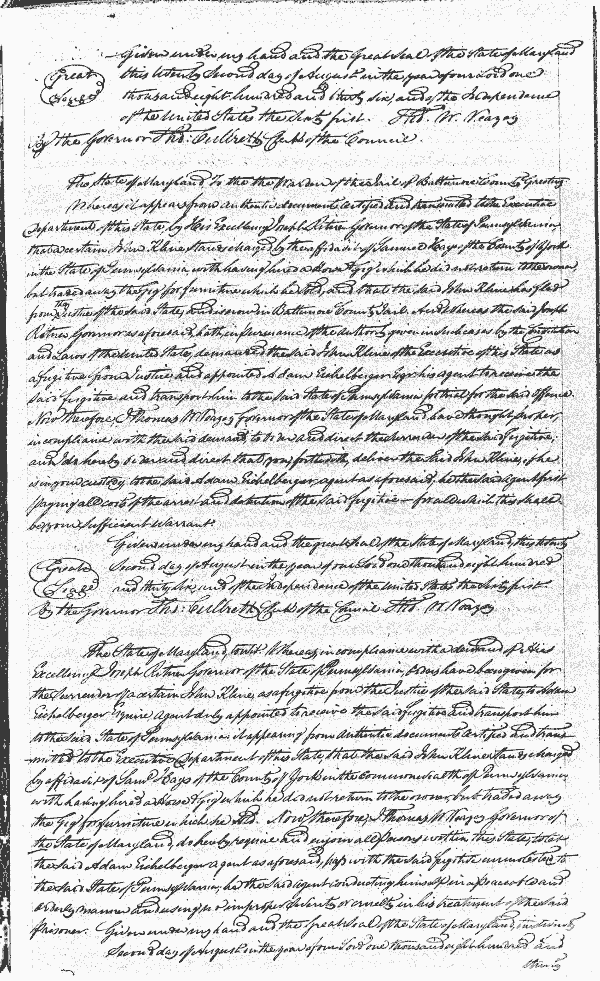 Given under my hand and the Great Seal of the State of Maryland
Great
this twenty Second day of August in the year of our Lord one
Seal
thousand eight hundred and thirty six, and of the Independence
of the United States the sixty first. Tho. W. Veazey
By the Governor Tho: Culbreth Clerk of the Council.
The State of Maryland, To the the Warden of the Jail of Baltimore County Greeting
Whereas it appears from authentic documents certified and transmitted to the Executive
Department of this State, by His Excellency Joseph Ritner Governor of the State of Pennsylvania
that a certain John Kline stands charged by the affidavit of Samuel Hays of the County of York
in the State of Pennsylvania, with having hired a Horse & Gig which he did not return to the owner,
but traded away the Gig for furniture which he sold, and that the said John Kline has fled
from the Justice of the said State, and is now in Baltimore County Jail. And Whereas the said Joseph
Ritner, Governor as aforesaid, hath in pursuance of the authority given in such cases by the Constitution
and Laws of the United States, demanded the said John Kline of the Executive of this State as
a fugitive from Justice and appointed Adam Eichelberger Esqr. his agent to receive the
said fugitive and transport him to the said State of Pennsylvania for trial for the said offence.
Now Therefore, I Thomas W Veazey Governor of the State of Maryland, have thought proper,
in compliance with the said demand, to order and direct the surrender of the said fugitive;
and I do hereby order and direct that you, forthwith, deliver the said John Kline, if he
is in your custody to the said Adam Eichelberger, agent as aforesaid, he the said Agent first
paying all costs of the arrest and detention of the said fugitive — for all which this shall
be your Sufficient Warrant.
Given under my hand and the great seal of the State of Maryland, this twenty
Great
Second day of August in the year of our Lord one thousand eight hundred
Seal
and thirty six, and of the Independence of the United States the sixty first.
By the Governor Tho: Culbreth Clerk of the Council Tho. W Veazey
The State of Maryland, to wit. Whereas, in compliance with a demand of His
Excellency Joseph Ritner Governor of the State of Pennsylvania, orders have been given for
the surrender of a certain John Kline, as a fugitive from the Justice of the said State, to Adam
Eichelberger Esquire Agent duly appointed to receive the said fugitive and transport him
to the said State of Pennsylvania; it appearing from authentic documents certified and trans-
mitted to the Executive Department of this State, that the said John Kline stands charged
by affidavit of Saml. Hays of the County of York in the Commonwealth of Pennsylvania
with having hired a Horse & Gig which he did not return to the owner, but traded away
the Gig for furniture which he sold. Now Therefore, I Thomas W Veazey Governor of
the State of Maryland, do hereby require and enjoin all persons within this State, to let
the said Adam Eichelberger agent as aforesaid, pass with the said fugitive unmolested to
the said State of Pennsylvania, he the said Agent conducting himself in a peaceable and
orderly manner and using no improper severity or cruelty in his treatment of the said
Prisoner. Given under my hand and the Great Seal of the State of Maryland, this twenty
Second day of August in the year of our Lord one thousand eight hundred and
thirty